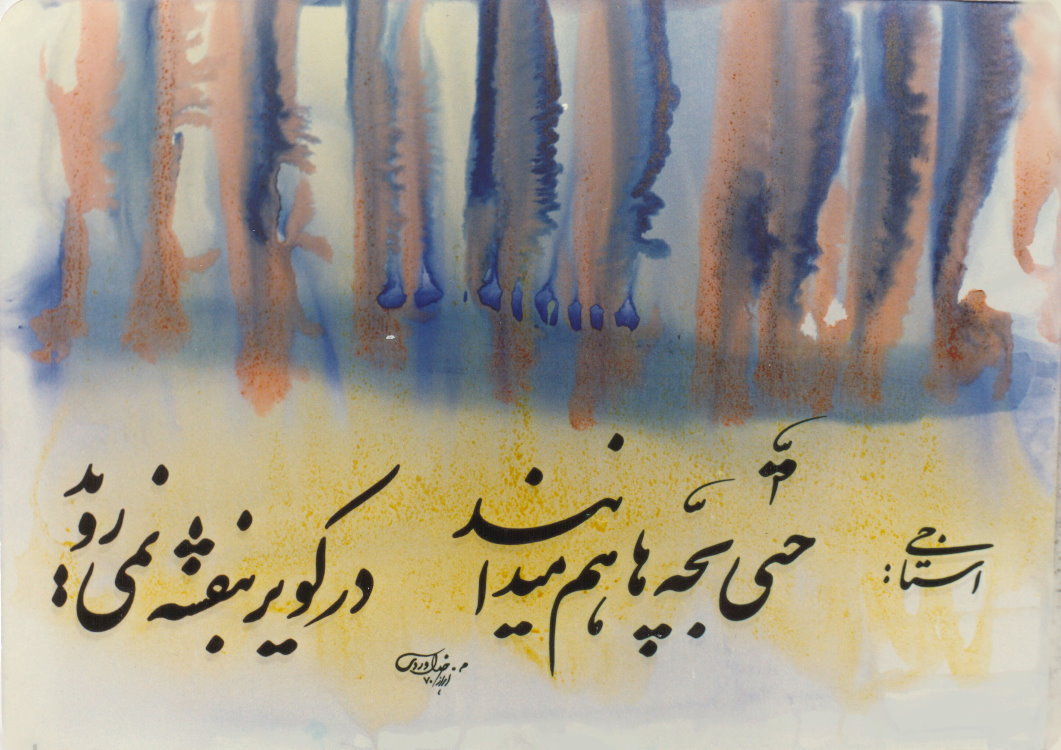 استاجی:
حتّی بچّه ها هم میدانند
در کویر بنفشه نمی روید
م. خداوردی
اهواز / ۷۰